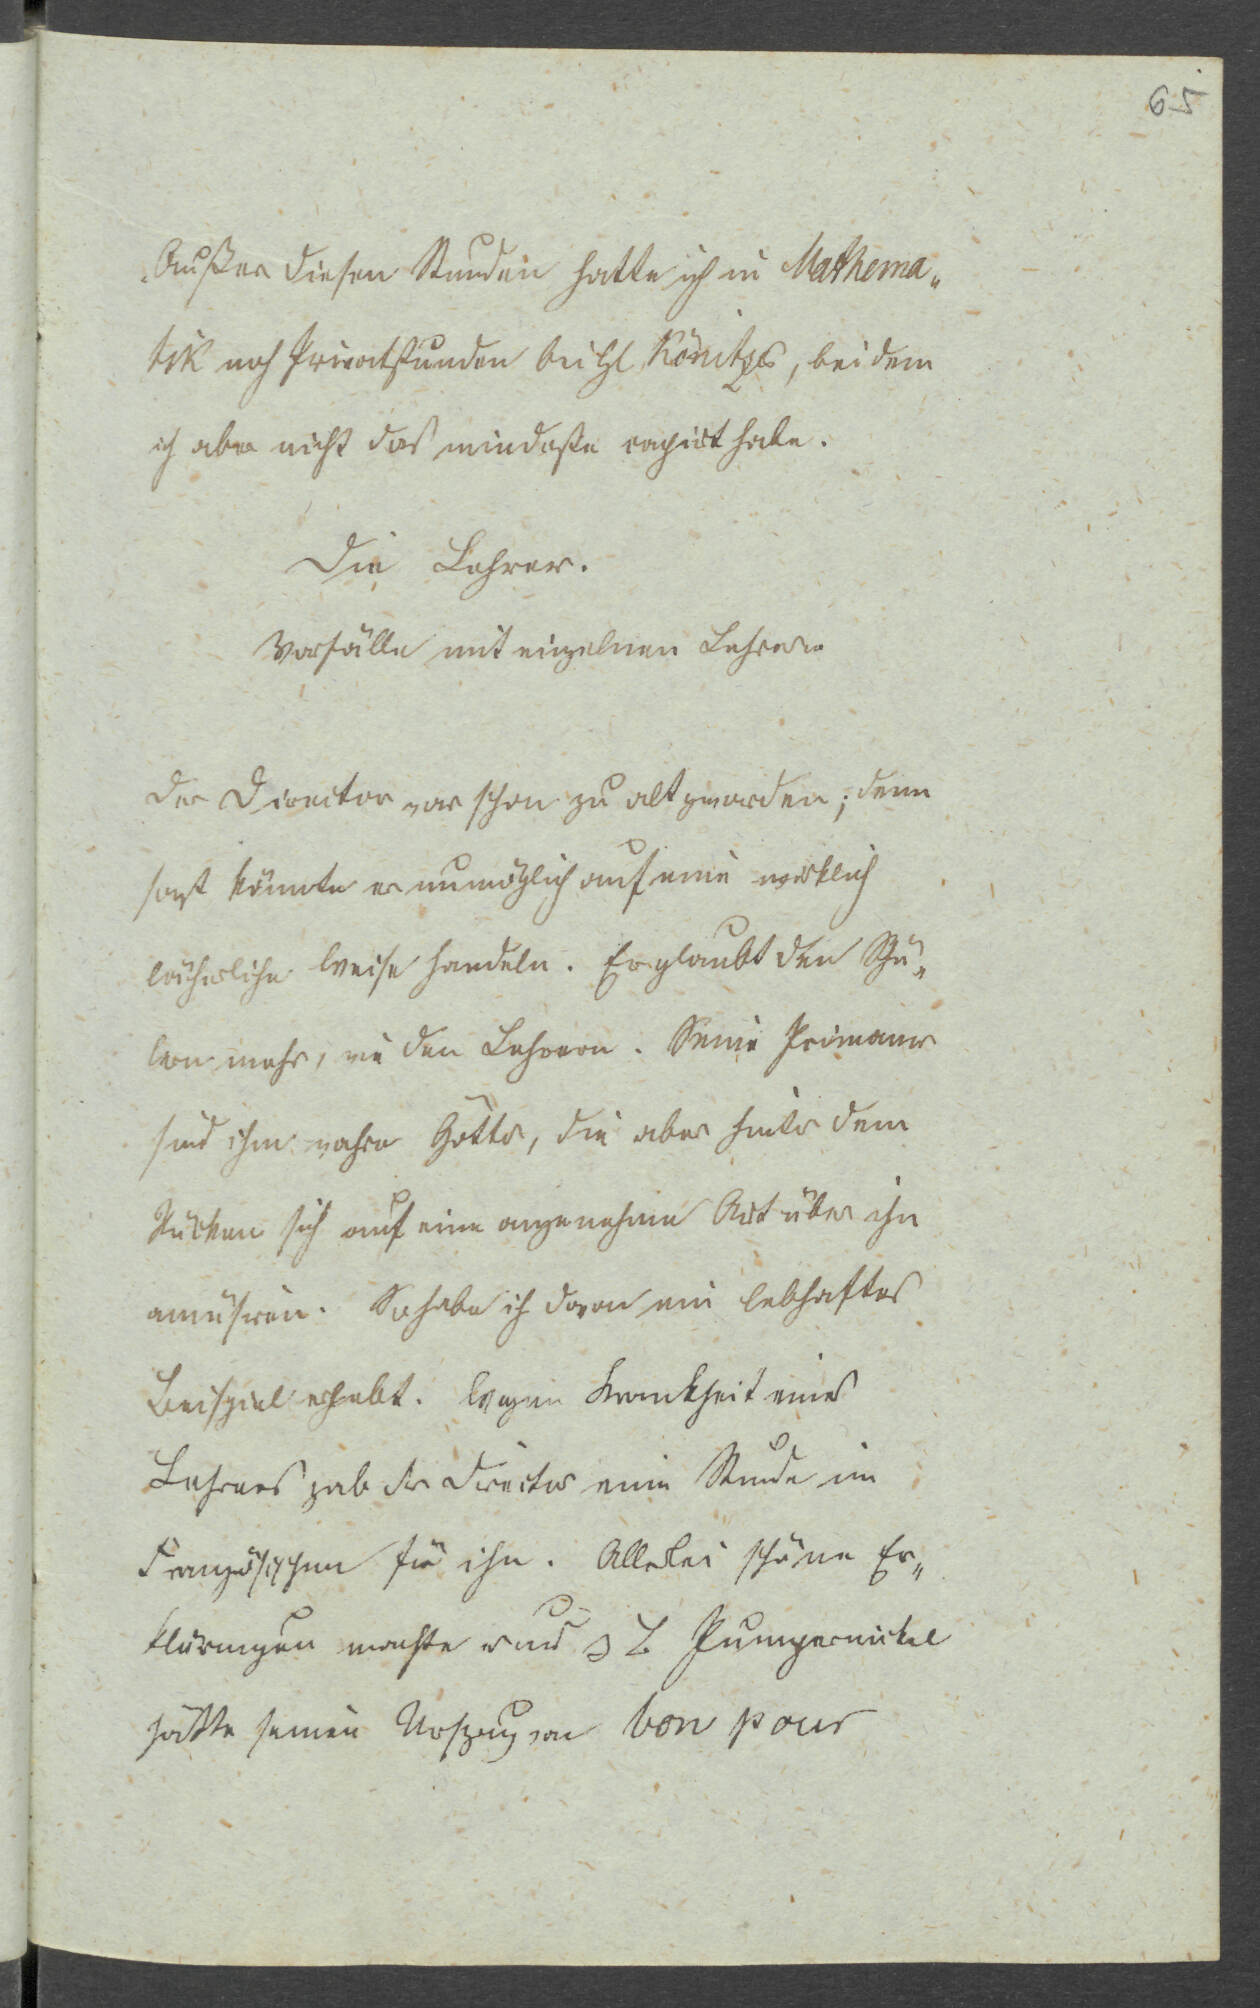 65
Außer diesen Stunden hatte ich in Mathema„
tik noch Privatstunden bei H Königs, bei dem
ich aber nicht das mindeste capirt habe.
Die Lehrer.
Vorfälle mit einzelnen Lehrern
Der Director war schon zu alt geworden; denn
sonst könnte er unmöglich auf eine wirklich
lächerliche Weise handeln. Er glaubt den Schü„
lern mehr, wie den Lehrern. Seine Primaner
sind ihm wahre Götter, die aber hinter dem
Rücken sich auf eine angenehme Art über ihn
amüsiren. So habe ich davon ein lebhaftes
Beispiel erlebt. Wegen Krankheit eines
Lehrers gab der Director eine Stunde im
Französischen für ihn. Allerlei schöne Er„
klärungen machte er uns z B Pumpernickel
hätte seinen Ursprung von bon pour